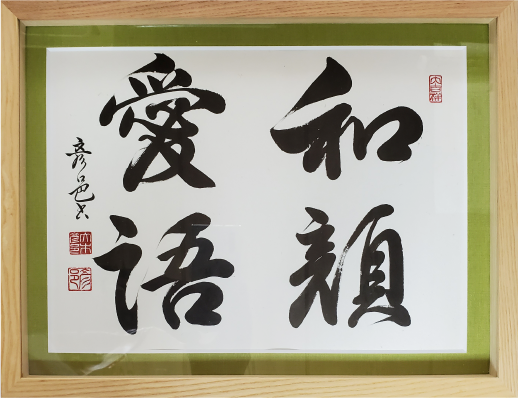 和顔
愛語
彦邑書